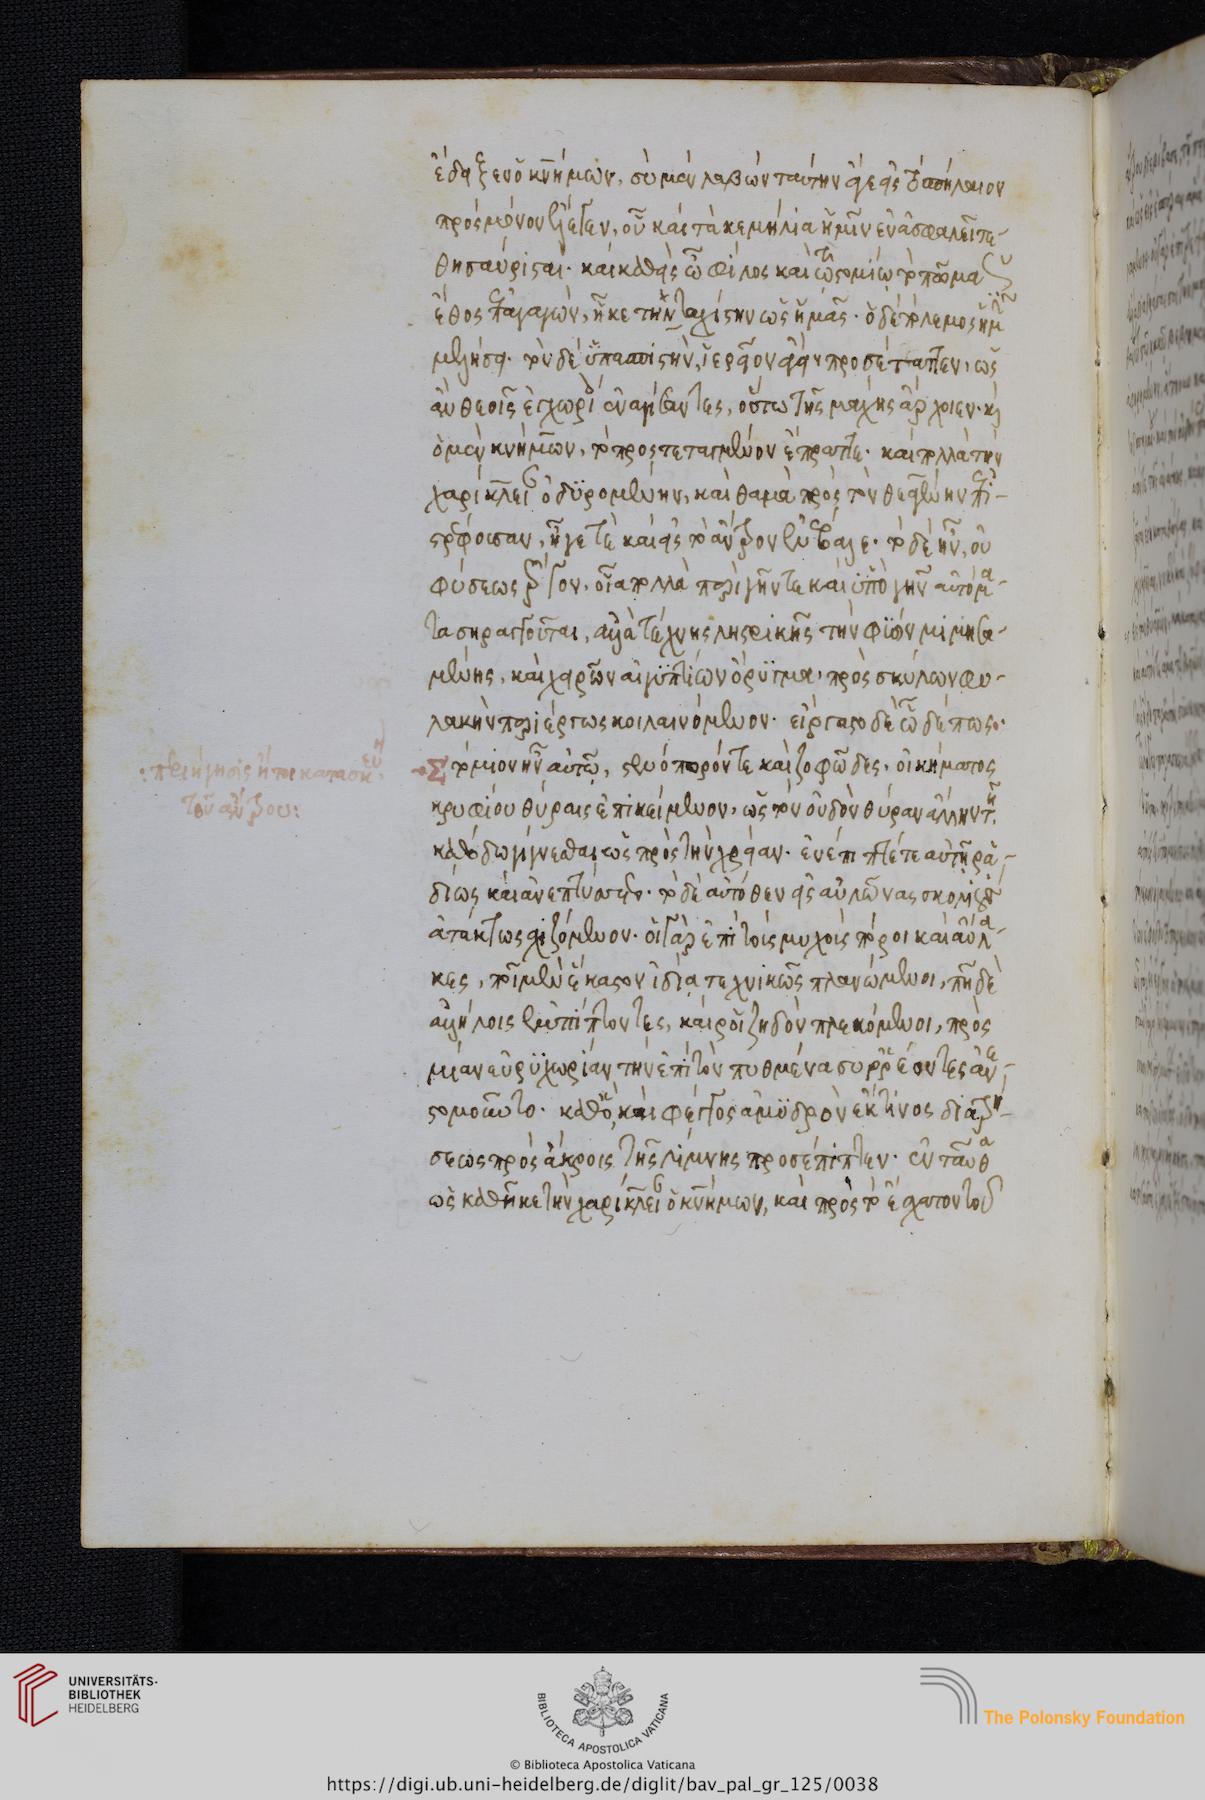 ἔδειξεν ὁ κνήμων, σὺ μὲν λαβὼν ταύτην ἄγε εἰς τὸ σπήλαιον
πρὸς μόνον ἔλεγεν, οὗ καὶ τὰ κειμήλια ἡμῖν ἐν ἀσφαλεῖ τε-
θησαύρισται. καὶ καθεὶς ὦ φίλος καὶ τῷ στομίῳ τὸ πῶμα
ἔθος ἐπαγαγὼν, ἧκε τὴν ταχίστην ὡς ἡμᾶς. ὁ δὲ πόλεμος ἡμῖν
μελήσει. τὸν δὲ ὑπασπιστὴν, ἱερεῖον ἄγειν προσέταττεν, ὡς
ἂν θεοῖς ἐγχωρίοις ἐναγίσαντες, οὕτω τῆς μάχης ἄρχοιεν. καὶ
ὁ μὲν κνήμων, τὸ προστεταγμένον ἔπραττε. καὶ πολλὰ τὴν
χαρίκλειαν ὀδυρομένην, καὶ θαμὰ πρὸς τὸν θεαγένην ἐπι-
στρέφουσαν, ἦγέ τε καὶ εἰς τὸ ἄντρον ἐνέβαλε. τὸ δὲ ἦν, οὐ
φύσεως ἔργον, οἷα πολλὰ περὶ γῆν τε καὶ ὑπὸ γῆν αὐτόμα-
τα σηραγγοῦται, ἀλλὰ τέχνης λῃστρικῆς τὴν φύσιν μιμησα-
μένης, καὶ χειρῶν αἰγυπτίων ὄρυγμα, πρὸς σκύλων φυ-
λακὴν περιέργως κοιλαινόμενον. εἴργαστο δὲ ὧδέ πως.
Στόμιον ἦν αὐτῷ, στενόπορόν τε καὶ ζοφῶδες. οἰκήματος
κρυφίου θύραις ἐπικείμενον, ὡς τὸν οὐδὸν θύραν ἄλλην τῇ
καθόδῳ γίνεσθαι ὡς πρὸς τὴν χρείαν. ἐνέπιπτέ τε αὐτῇ ῥᾳ-
δίως καὶ ἀνεπτύσσετο. τὸ δὲ αὐτόθεν εἰς αὐλῶνας σκολιοὺς
ἀτάκτως σχιζόμενον. οἱ γὰρ ἐπὶ τοὺς μυχοὺς πόροι καὶ αὔλα-
κες, πῆ μὲν ἕκαστον ἰδίᾳ τεχνικῶς πλανώμενοι, πῆ δὲ
ἀλλήλοις ἐμπίπτοντες, καὶ ῥιζηδὸν πλεκόμενοι, πρὸς
μίαν εὐρυχωρίαν τὴν ἐπὶ τὸν πυθμένα συρρέοντες ἀνε-
στομοῦντο. καθ' ὃ, καὶ φέγγος ἀμυδρὸν ἔκ τινος διατρή-
σεως πρὸς ἄκροις τῆς λίμνης προσέπιπτεν. ἐνταῦθα
ὡς καθῆκε τὴν χαρίκλειαν ὁ κνήμων, καὶ πρὸς τὸ ἔσχατον τοῦ
: περιήγησις ἤτοι κατασκευὴ
τοῦ ἄντρου:
UNIVERSITÄTS-
BIBLIOTHEK
HEIDELBERG
BIBLIOTECA APOSTOLICA VATICANA
The Polonsky Foundation
© Biblioteca Apostolica Vaticana
https://digi.ub.uni-heidelberg.de/diglit/bav_pal_gr_125/0038